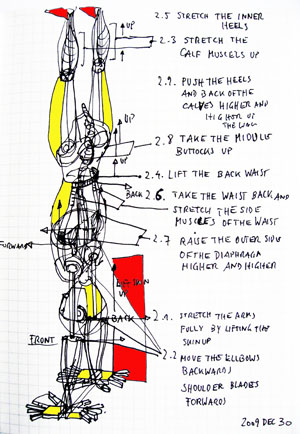 2.5 STRETCH THE INNER
HEELS
UP
2.3 STRETCH THE
CALF MUSCELS UP
2.9. PUSH THE HEELS
AND BACK OF THE
CALVES HIGHER AND
HIGHER UP
THE WALL
UP
2.8 TAKE THE MIDDLE
BUTTOCKS UP
UP
2.4. LIFT THE BACK WAIST
BACK
2.6. TAKE THE WAIST BACK AND
STRETCH THE SIDE
MUSCLES OF THE WAIST
FORWARD
2.7 RAISE THE OUTER SIDE
OF THE DIAPHRAGM
HIGHER AND HIGHER
UP
BACK
2.1. STRETCH THE ARMS
FULLY BY LIFTING THE
SKIN UP
FRONT
2.2 MOVE THE ELLBOWS
BACKWARDS
SHOULDER BLADES
FORWARDS
2009 DEC 30